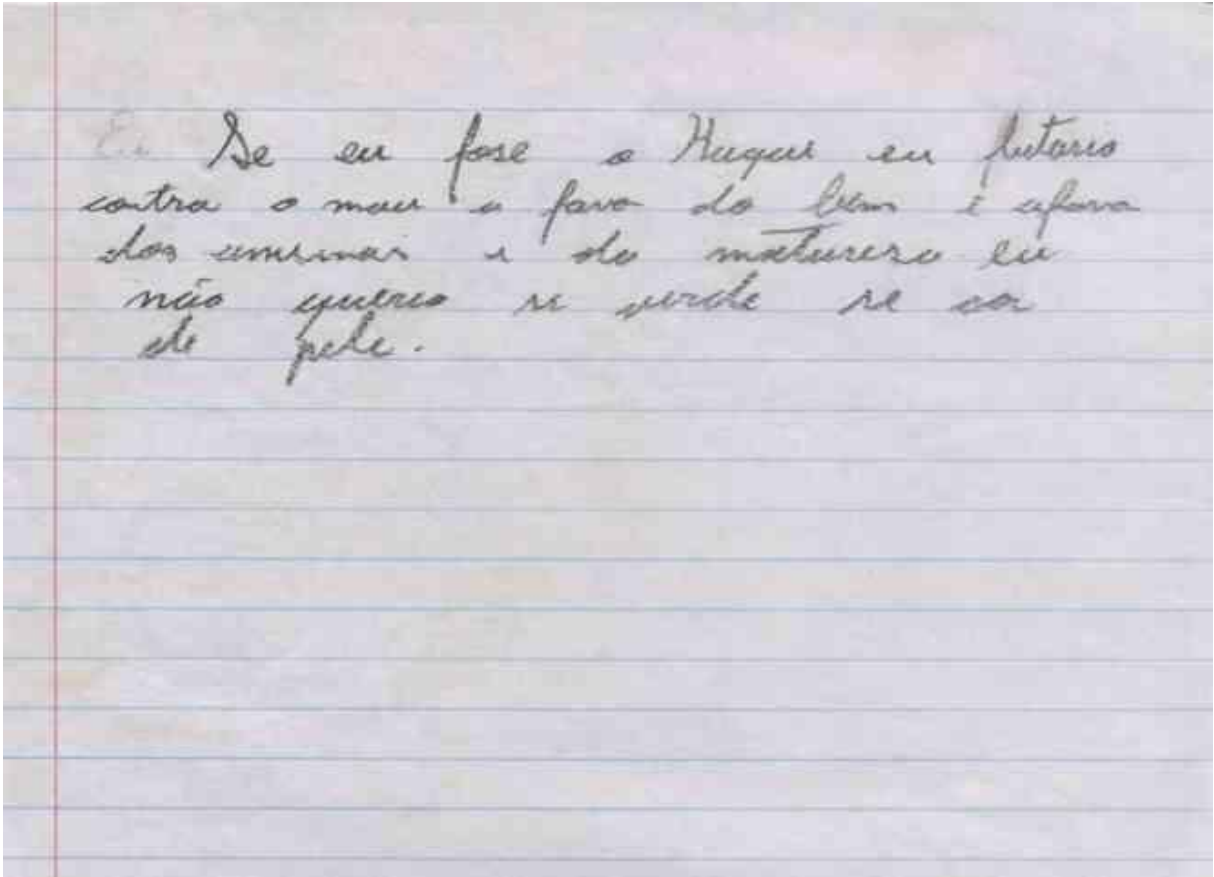 Se eu fose o Huqui eu lutaria
contra o mau a favo do bem i afavo
dos animas i da naturesa eu
não queria se verde se cor
de pele.